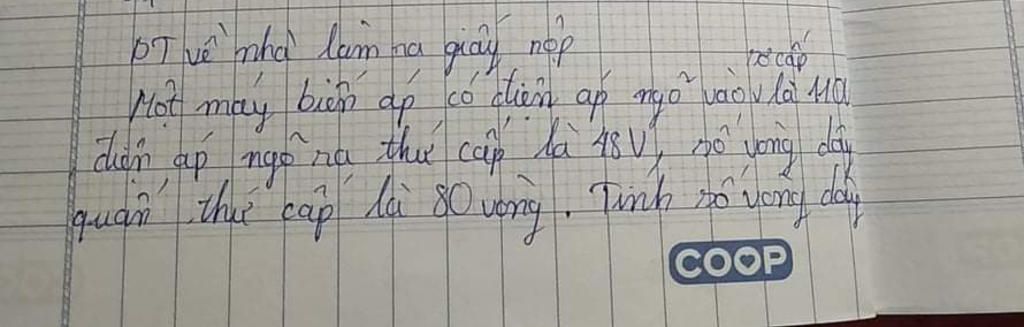 BT về nhà làm ra giấy nộp
sơ cấp
Một máy biến áp có điện áp ngõ vào v là 110
điện áp ngõ ra thứ cấp là 48V, số vòng dây
quấn thứ cấp là 80 vòng. Tính số vòng dây
COOP